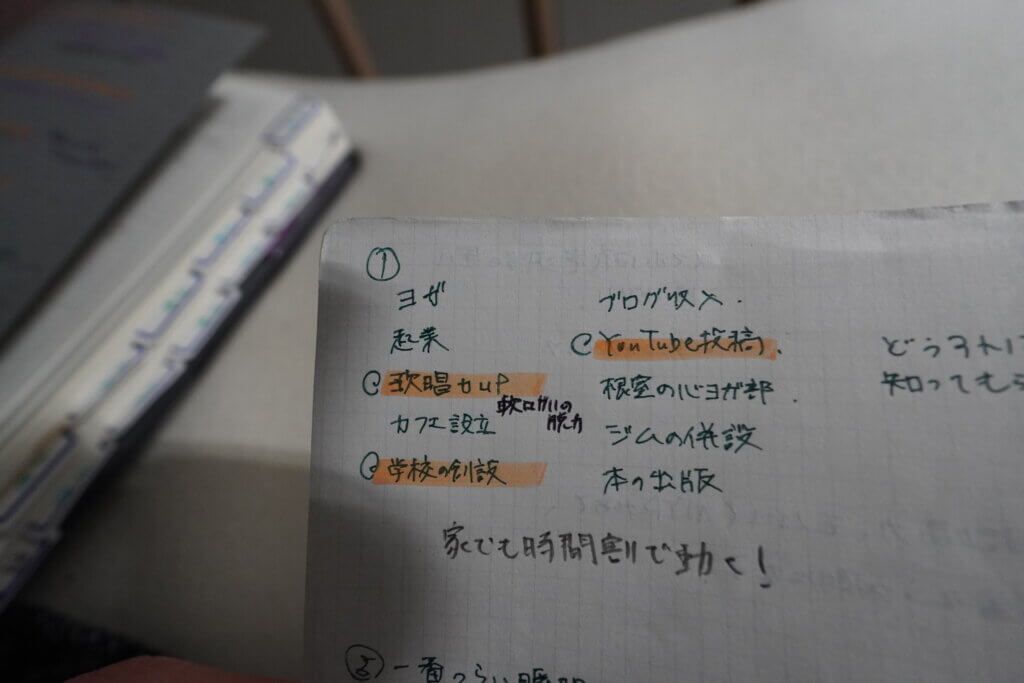 ①
ヨガ
起業
歌唱力up
軟口がいの
脱力
カフェ設立
学校の創設
ブログ収入.
YouTube投稿.
根室の心ヨガ部.
ジムの併設
本の出版
どうすれば
知っても
家でも時間割で動く!
② 一番つらい瞬間